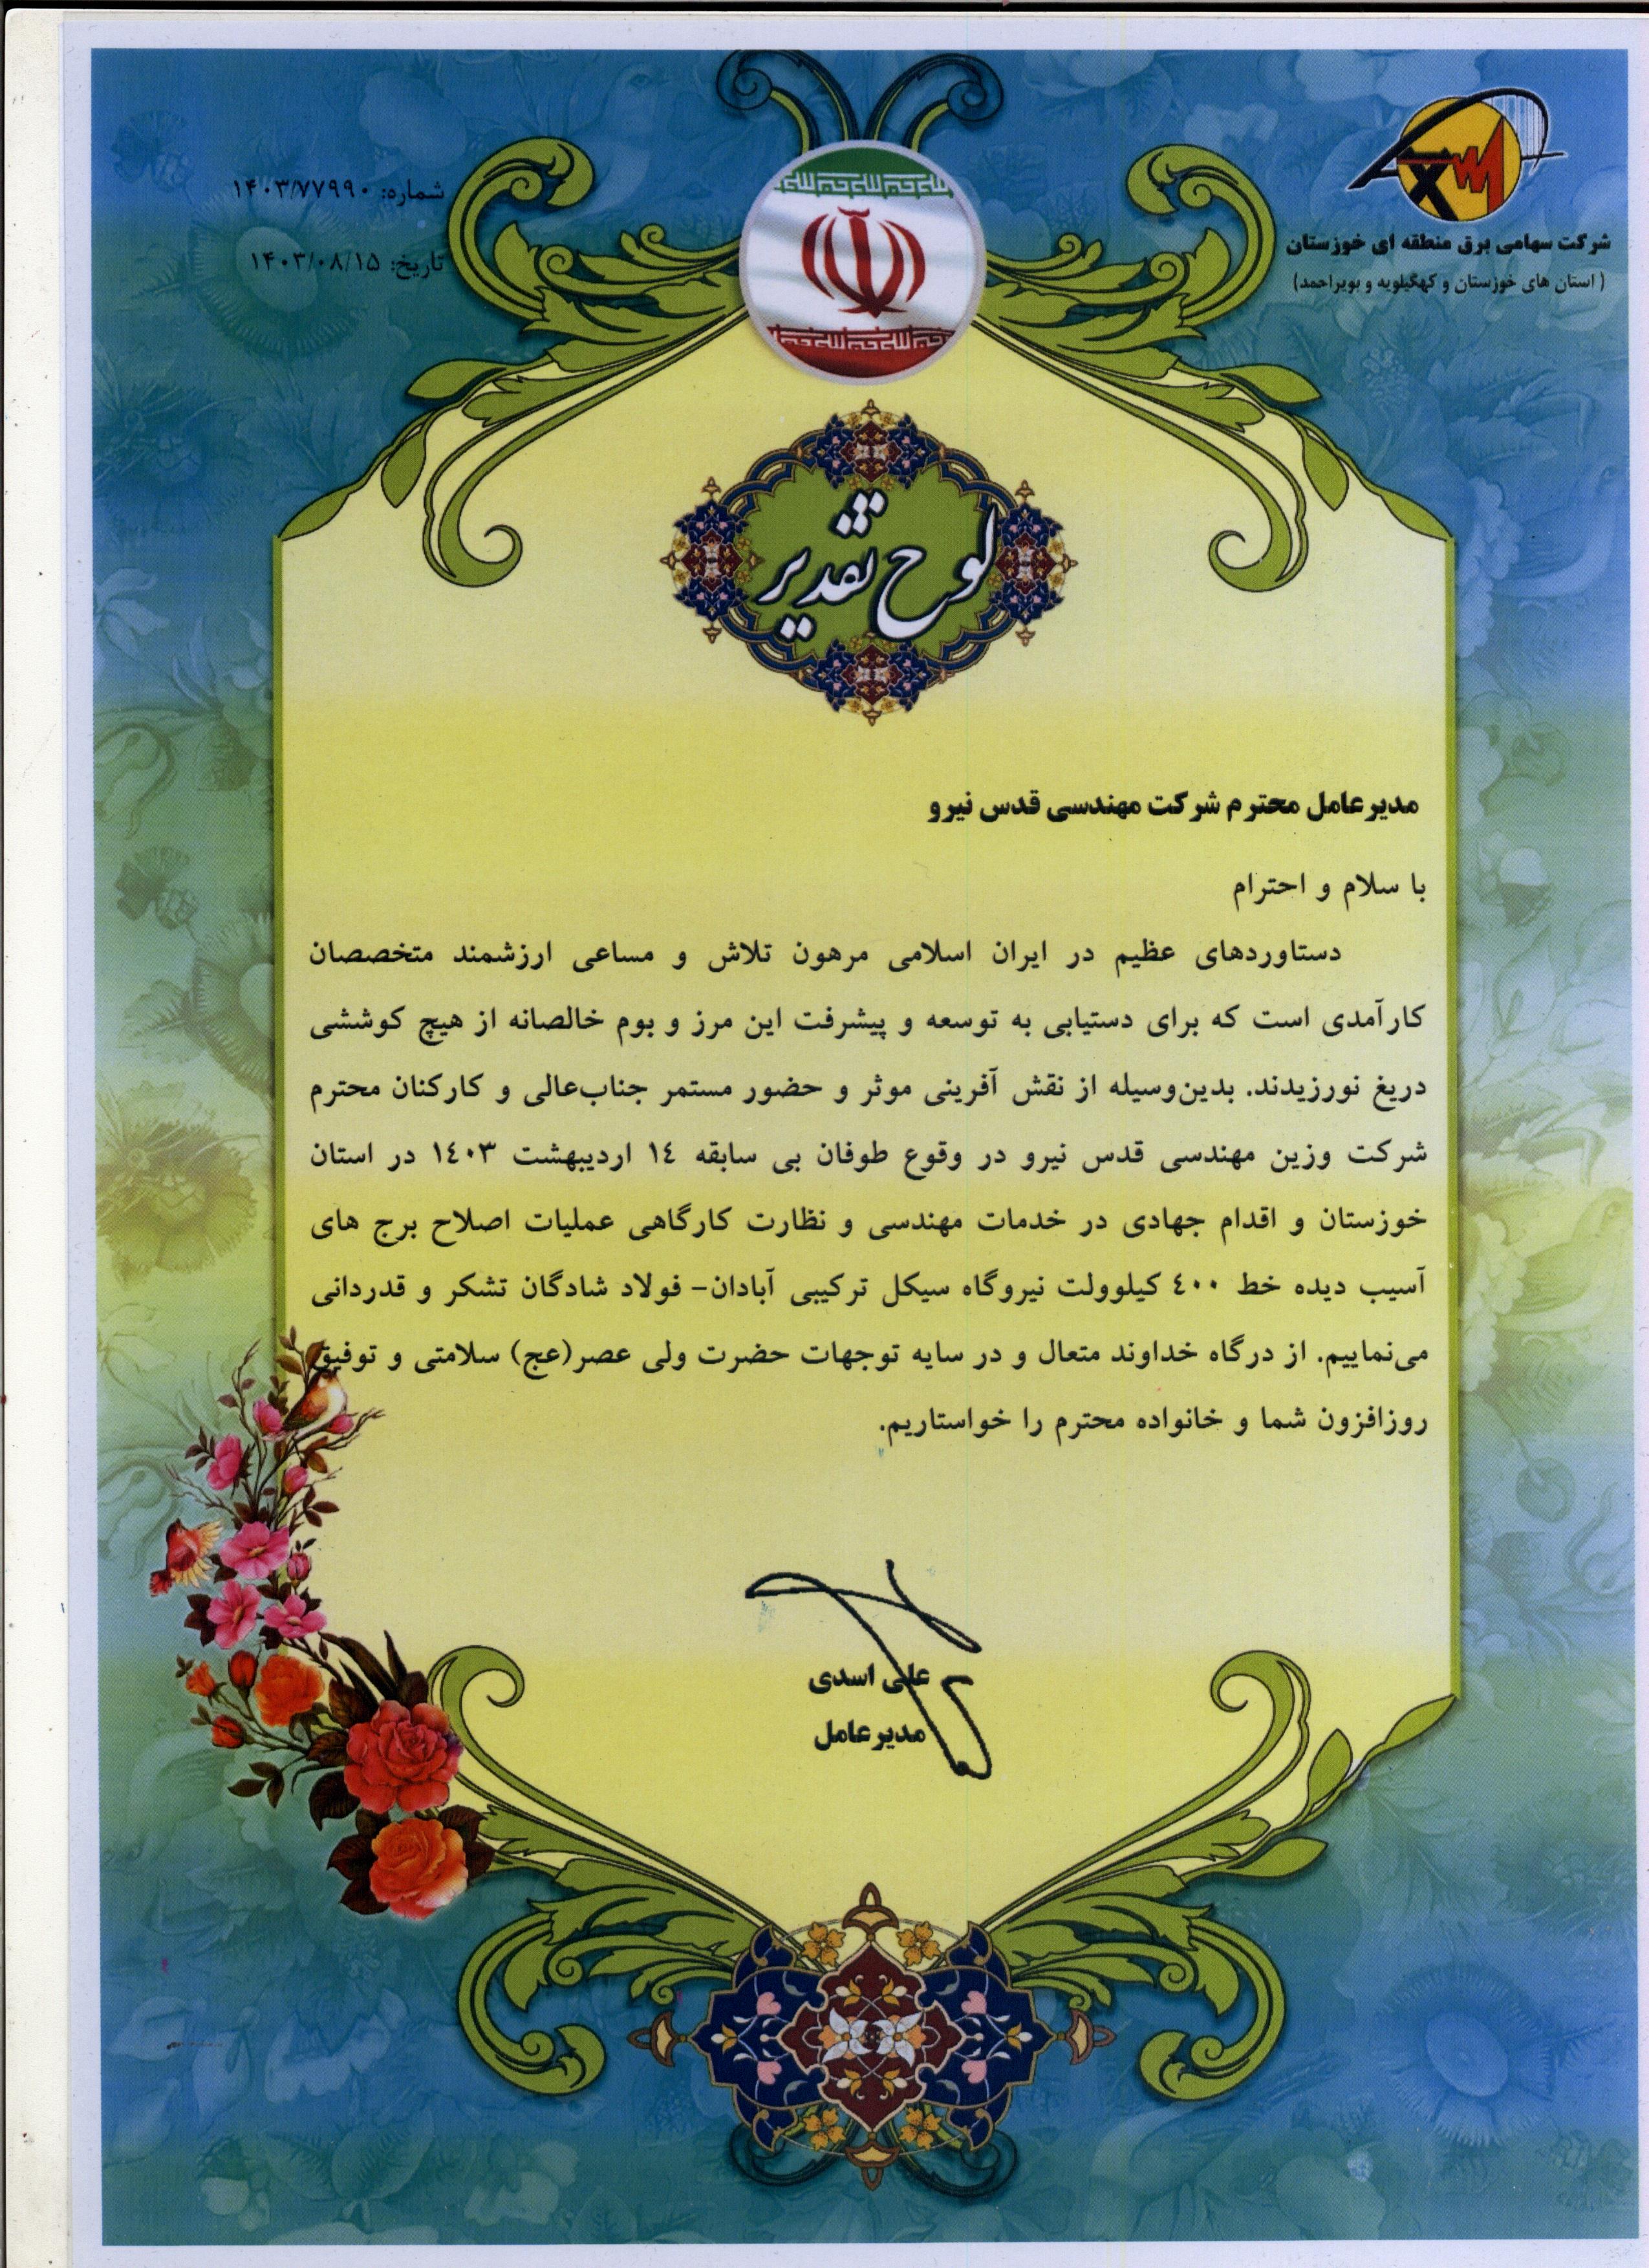 شرکت سهامی برق منطقه ای خوزستان
(استان های خوزستان و کهگیلویه و بویراحمد)
شماره: ۱۴۰۳/۷۷۹۹۰
تاریخ: ۱۴۰۳/۰۸/۱۵
لوح تقدیر
مدیرعامل محترم شرکت مهندسی قدس نیرو
با سلام و احترام
دستاوردهای عظیم در ایران اسلامی مرهون تلاش و مساعی ارزشمند متخصصان
کارآمدی است که برای دستیابی به توسعه و پیشرفت این مرز و بوم خالصانه از هیچ کوششی
دریغ نورزیدند. بدین‌وسیله از نقش آفرینی موثر و حضور مستمر جناب‌عالی و کارکنان محترم
شرکت وزین مهندسی قدس نیرو در وقوع طوفان بی سابقه ١٤ اردیبهشت ١٤٠٣ در استان
خوزستان و اقدام جهادی در خدمات مهندسی و نظارت کارگاهی عملیات اصلاح برج های
آسیب دیده خط ٤٠٠ کیلوولت نیروگاه سیکل ترکیبی آبادان- فولاد شادگان تشکر و قدردانی
می‌نماییم. از درگاه خداوند متعال و در سایه توجهات حضرت ولی عصر(عج) سلامتی و توفیق
روزافزون شما و خانواده محترم را خواستاریم.
علی اسدی
مدیرعامل